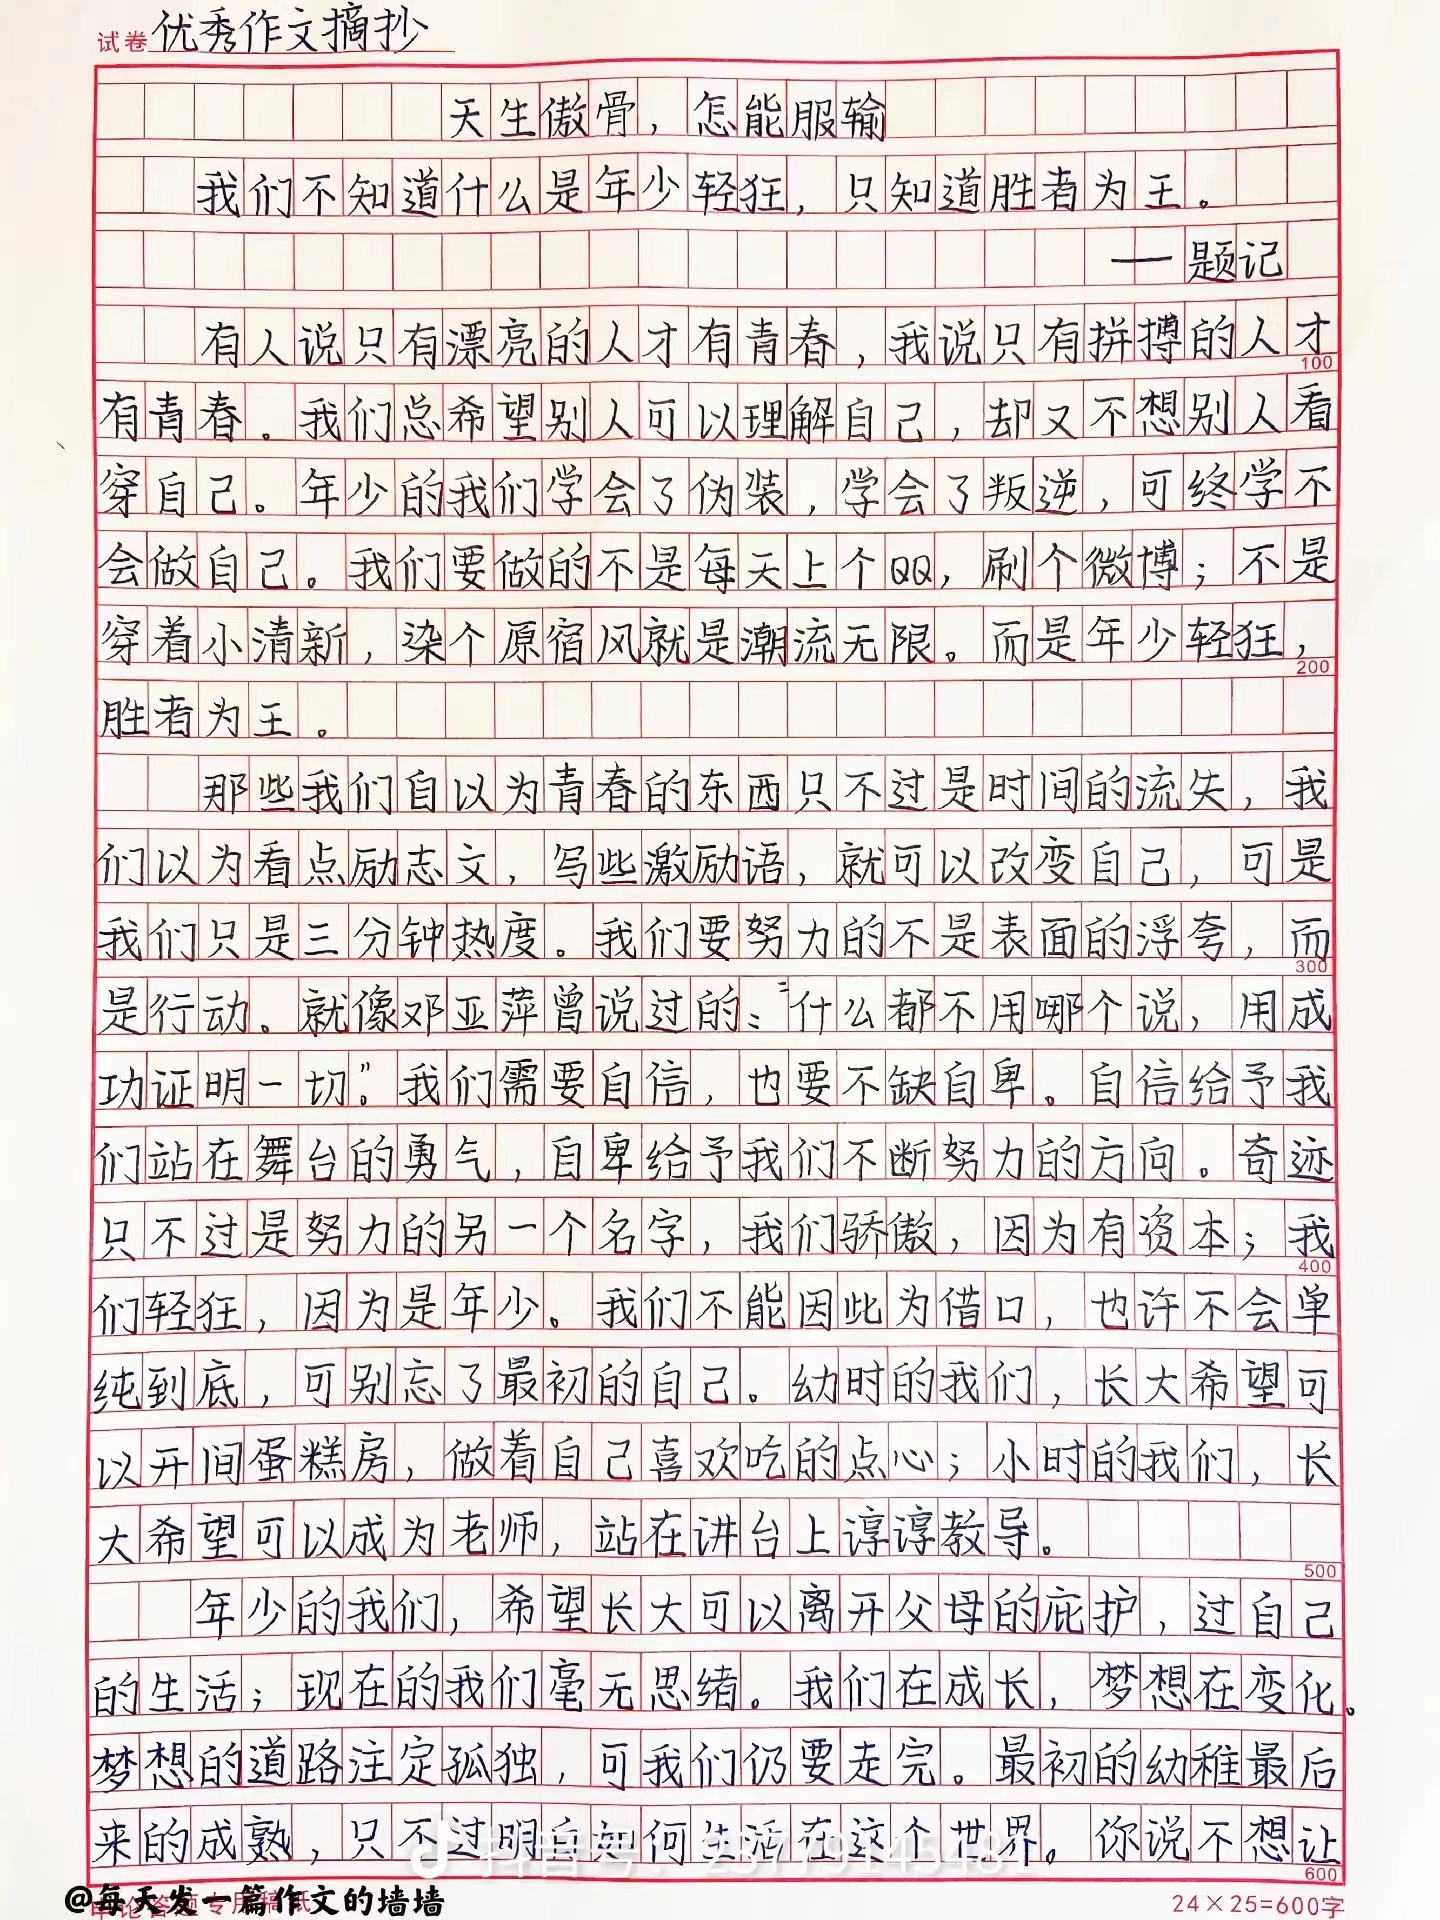 试卷 优秀作文摘抄
天生傲骨，怎能服输
我们不知道什么是年少轻狂，只知道胜者为王。
——题记
有人说只有漂亮的人才有青春，我说只有拼搏的人才
100
有青春。我们总希望别人可以理解自己，却又不想别人看
穿自己。年少的我们学会了伪装，学会了叛逆，可终学不
会做自己。我们要做的不是每天上个QQ，刷个微博；不是
穿着小清新，染个原宿风就是潮流无限。而是年少轻狂，
200
胜者为王。
那些我们自以为青春的东西只不过是时间的流失，我
们以为看点励志文，写些激励语，就可以改变自己，可是
我们只是三分钟热度。我们要努力的不是表面的浮夸，而
300
是行动。就像邓亚萍曾说过的："什么都不用哪个说，用成
功证明一切。"我们需要自信，也要不缺自卑。自信给予我
们站在舞台的勇气，自卑给予我们不断努力的方向。奇迹
只不过是努力的另一个名字，我们骄傲，因为有资本；我
400
们轻狂，因为是年少。我们不能因此为借口，也许不会单
纯到底，可别忘了最初的自己。幼时的我们，长大希望可
以开间蛋糕房，做着自己喜欢吃的点心；小时的我们，长
大希望可以成为老师，站在讲台上谆谆教导。
500
年少的我们，希望长大可以离开父母的庇护，过自己
的生活；现在的我们毫无思绪。我们在成长，梦想在变化。
梦想的道路注定孤独，可我们仍要走完。最初的幼稚最后
来的成熟，只不过明白如何生活在这个世界。你说不想让
600
抖音号：23779145481
@每天发一篇作文的墙墙
申论答题专用稿纸
24×25=600字